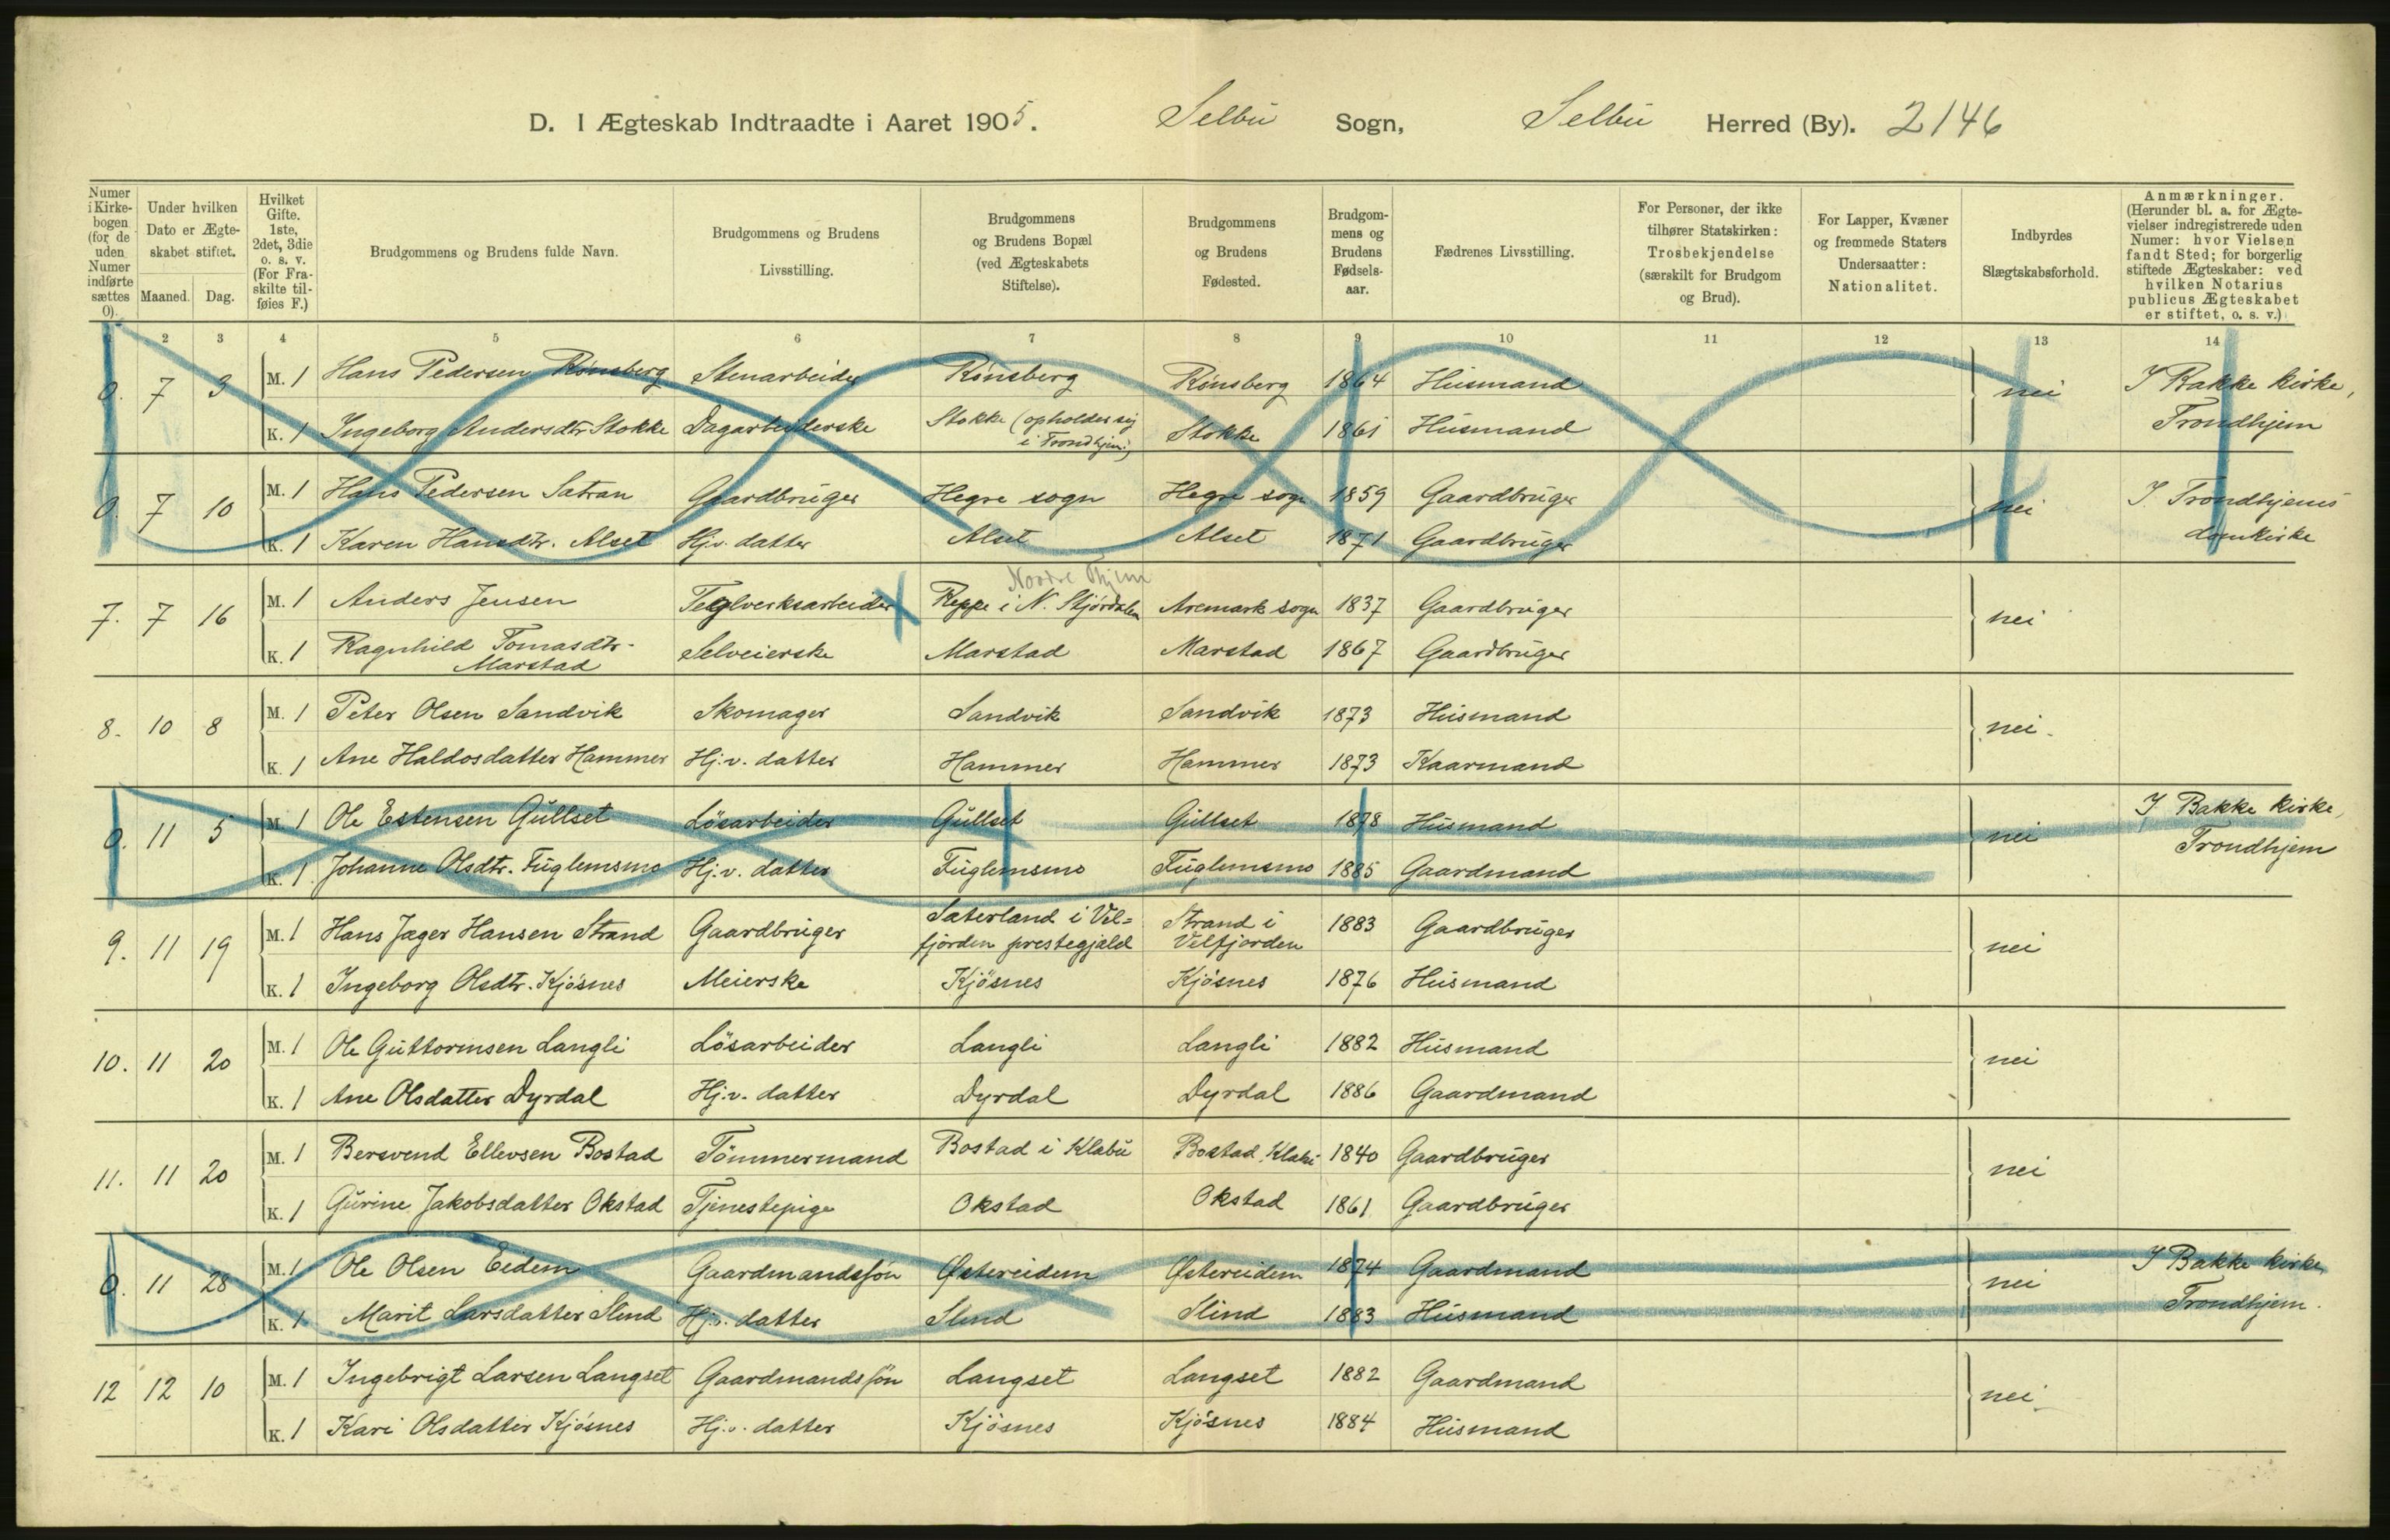 D. I Ægteskab Indtraadte i Aaret 1905. Selbu Sogn, Selbu Herred (By). 2146
Numer i Kirkebogen (for de uden Numer indførte sættes 0). Under hvilken Dato er Ægteskabet stiftet. Maaned. Dag. Hvilket Gifte. 1ste, 2det, 3die o. s. v. (For Fraskilte tilføies F.) Brudgommens og Brudens fulde Navn. Brudgommens og Brudens Livsstilling. Brudgommens og Brudens Bopæl (ved Ægteskabets Stiftelse). Brudgommens og Brudens Fødested. Brudgommens og Brudens Fødselsaar. Fædrenes Livsstilling. For Personer, der ikke tilhører Statskirken: Trosbekjendelse (særskilt for Brudgom og Brud). For Lapper, Kvæner og fremmede Staters Undersaatter: Nationalitet. Indbyrdes Slægtskabsforhold. Anmærkninger. (Herunder bl. a. for Ægtevielser indregistrerede uden Numer: hvor Vielsen fandt Sted; for borgerlig stiftede Ægteskaber: ved hvilken Notarius publicus Ægteskabet er stiftet, o. s. v.)
1 2 3 4 5 6 7 8 9 10 11 12 13 14
0. 7 3 M. 1 Hans Pedersen Rönsberg Stenarbeider Rönsberg Rönsberg 1864 Husmand nei I Bakke kirke,
K. 1 Ingeborg Andersdtr Stokke Dagarbeiderske Stokke (opholder sig i Trondhjem) Stokke 1861 Husmand Trondhjem
0. 7 10 M. 1 Hans Pedersen Satran Gaardbruger Hegre sogn Hegre sogn 1859 Gaardbruger nei I. Trondhjems
K. 1 Karen Hansdtr. Alset Hj.v. datter Alset Alset 1871 Gaardbruger domkirke
Nordre Thjem
7. 7 16 M. 1 Anders Jensen Teglverksarbeider Reppe i N. Stjördalen Aremark sogn 1837 Gaardbruger nei
K. 1 Ragnhild Tomasdtr. Marstad Selveierske Marstad Marstad 1867 Gaardbruger
8. 10 8 M. 1 Peter Olsen Sandvik Skomager Sandvik Sandvik 1873 Husmand nei.
K. 1 Ane Haldosdatter Hammer Hj.v. datter Hammer Hammer 1873 Kaarmand
0. 11 5 M. 1 Ole Estensen Gullset Lösarbeider Gullset Gullset 1878 Husmand nei I Bakke kirke,
K. 1 Johanne Olsdtr. Fuglemsmo Hj.v. datter Fuglemsmo Fuglemsmo 1885 Gaardmand Trondhjem
9. 11 19 M. 1 Hans Jager Hansen Strand Gaardbruger Saterland i Vel= fjorden prestegjæld Strand i Velfjorden 1883 Gaardbruger nei
K. 1 Ingeborg Olsdtr. Kjösnes Meierske Kjösnes Kjösnes 1876 Husmand
10. 11 20 M. 1 Ole Guttormsen Langli Lösarbeider Langli Langli 1882 Husmand nei
K. 1 Ane Olsdatter Dyrdal Hj.v. datter Dyrdal Dyrdal 1886 Gaardmand
11. 11 20 M. 1 Bersvend Ellevsen Bostad Tömmermand Bostad i Klabu Bostad Klabu 1840 Gaardbruger nei
K. 1 Gurine Jakobsdatter Okstad Tjenestepige Okstad Okstad 1861 Gaardbruger
0. 11 28 M. 1 Ole Olsen Eidem Gaardmandssön Østereidem Østereidem 1874 Gaardmand nei I Bakke kirke,
K. 1 Marit Larsdatter Slind Hj.v. datter Slind Slind 1883 Husmand Trondhjem.
12 12 10 M. 1 Ingebrigt Larsen Langset Gaardmandssön Langset Langset 1882 Gaardmand nei.
K. 1 Kari Olsdatter Kjösnes Hj.v. datter Kjösnes Kjösnes 1884 Husmand